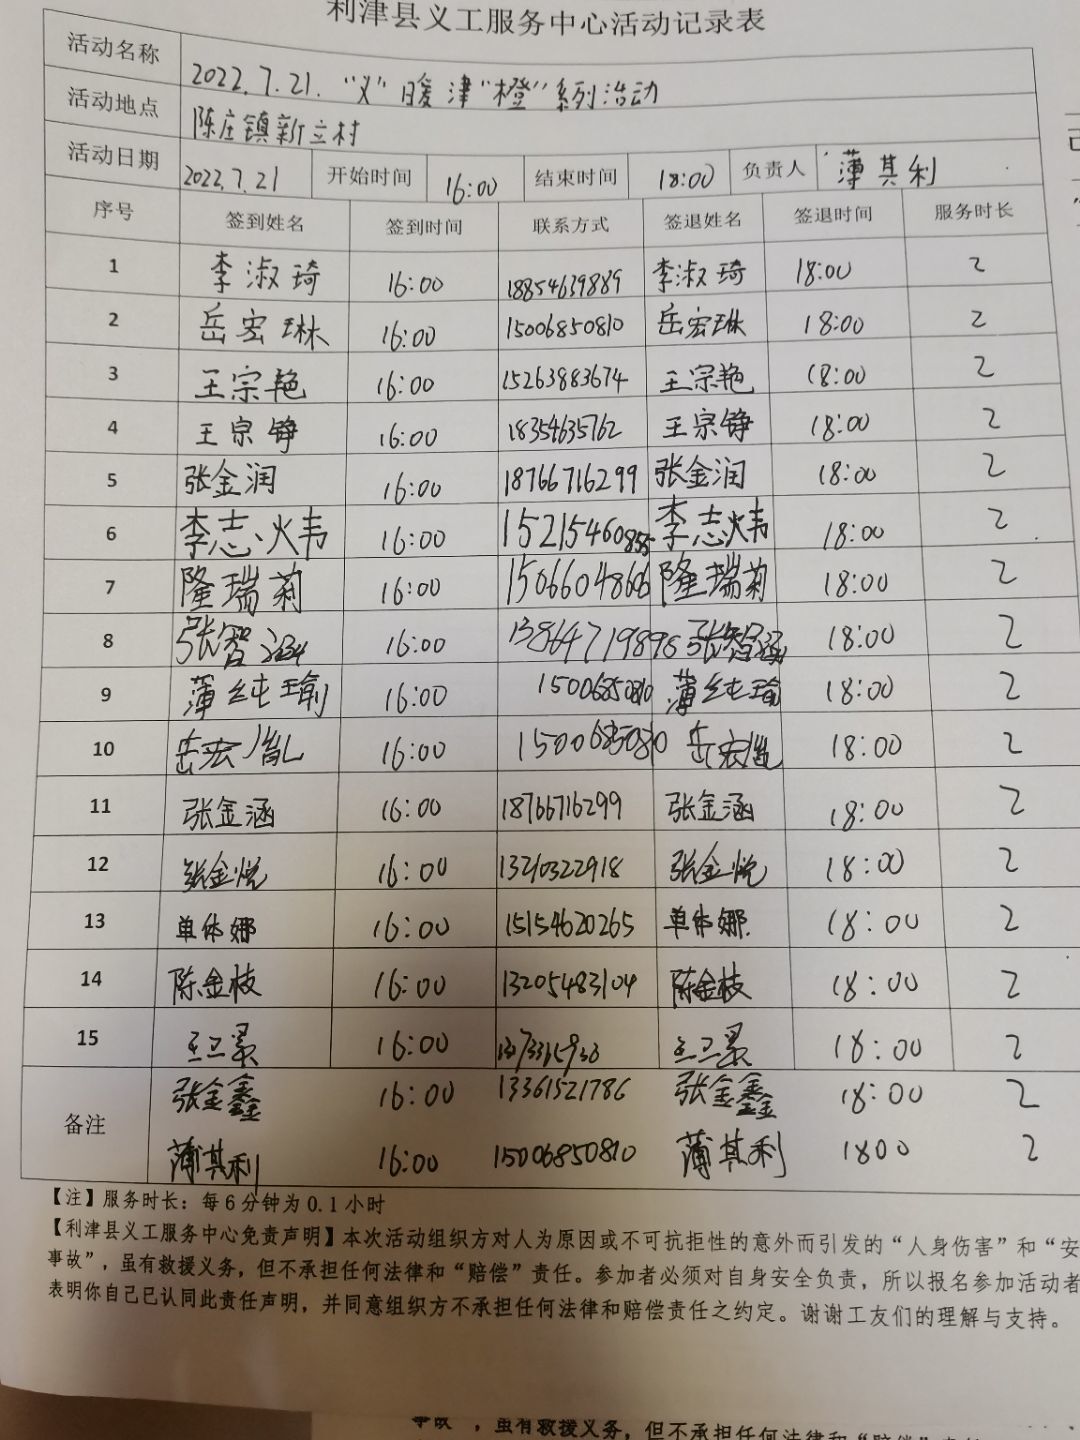 利津县义工服务中心活动记录表
活动名称 2022.7.21. "义"暖津"橙"系列活动
活动地点 陈庄镇新立村
活动日期 2022.7.21 开始时间 16:00 结束时间 18:00 负责人 薄其利
序号 签到姓名 签到时间 联系方式 签退姓名 签退时间 服务时长
1 李淑琦 16:00 18854639889 李淑琦 18:00 2
2 岳宏琳 16:00 15006850810 岳宏琳 18:00 2
3 王宗艳 16:00 15263883674 王宗艳 18:00 2
4 王宗铮 16:00 18354635762 王宗铮 18:00 2
5 张金润 16:00 18766716299 张金润 18:00 2
6 李志炜 16:00 15215460855 李志炜 18:00 2
7 隆瑞莉 16:00 15066048606 隆瑞莉 18:00 2
8 张智涵 16:00 13864719898 张智涵 18:00 2
9 薄纯瑜 16:00 15006850810 薄纯瑜 18:00 2
10 岳宏胤 16:00 15006850810 岳宏胤 18:00 2
11 张金涵 16:00 18766716299 张金涵 18:00 2
12 张金悦 16:00 13210322918 张金悦 18:00 2
13 单体娜 16:00 15154620265 单体娜 18:00 2
14 陈金枝 16:00 13205483104 陈金枝 18:00 2
15 王卫景 16:00 王卫景 18:00 2
备注 张金鑫 16:00 13361521786 张金鑫 18:00 2
薄其利 16:00 15006850810 薄其利 1800 2
【注】服务时长：每6分钟为0.1小时
【利津县义工服务中心免责声明】本次活动组织方对人为原因或不可抗拒性的意外而引发的“人身伤害”和“安
事故”，虽有救援义务，但不承担任何法律和“赔偿”责任。参加者必须对自身安全负责，所以报名参加活动者
表明你自己已认同此责任声明，并同意组织方不承担任何法律和赔偿责任之约定。谢谢工友们的理解与支持。
事故”，虽有救援义务，但不承担任何法律和“赔偿”